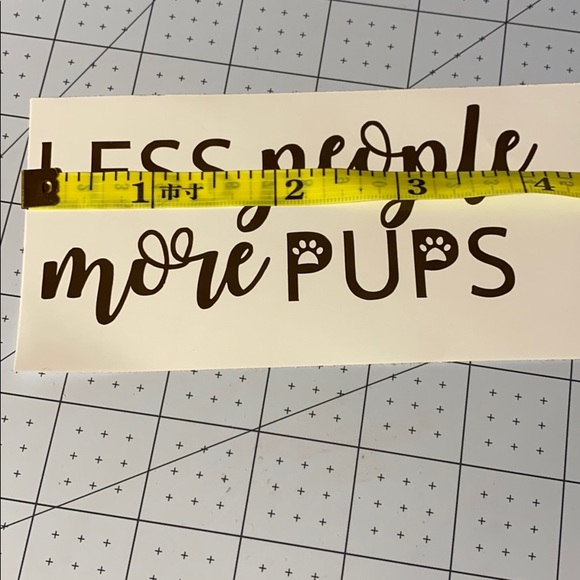 LESS people
1 市寸 2 3 4
more PUPS